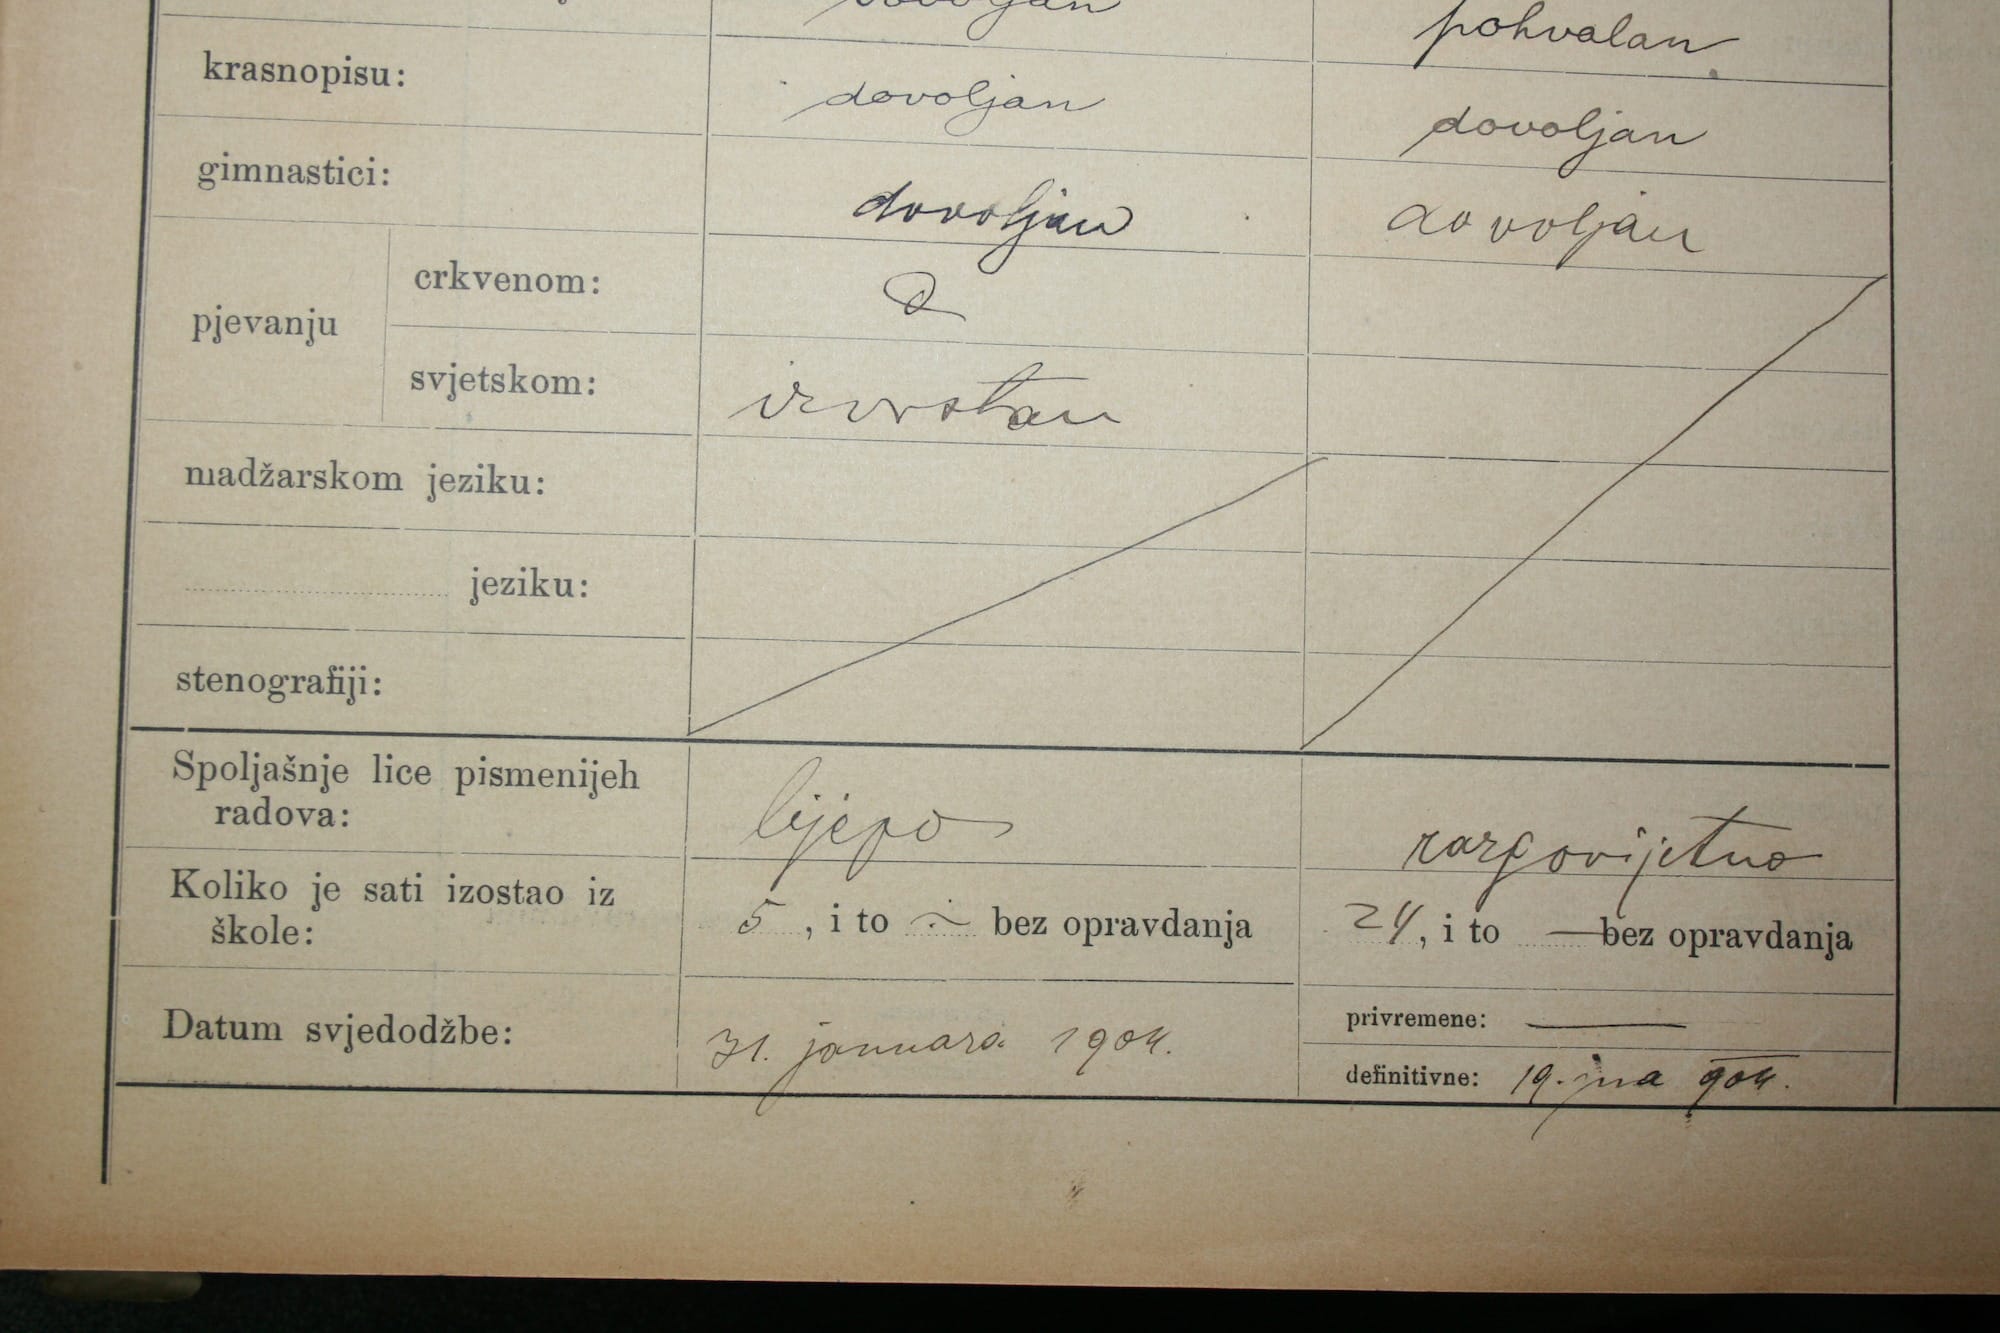 dovoljan pohvalan
krasnopisu: dovoljan dovoljan
gimnastici: dovoljan dovoljan
pjevanju crkvenom:
svjetskom: izvrstan
madžarskom jeziku:
jeziku:
stenografiji:
Spoljašnje lice pismenijeh
radova: lijepo razgovijetno
Koliko je sati izostao iz
škole: 5, i to bez opravdanja 24, i to — bez opravdanja
Datum svjedodžbe: 31. januara 1904. privremene: —
definitivne: 19. juna 904.